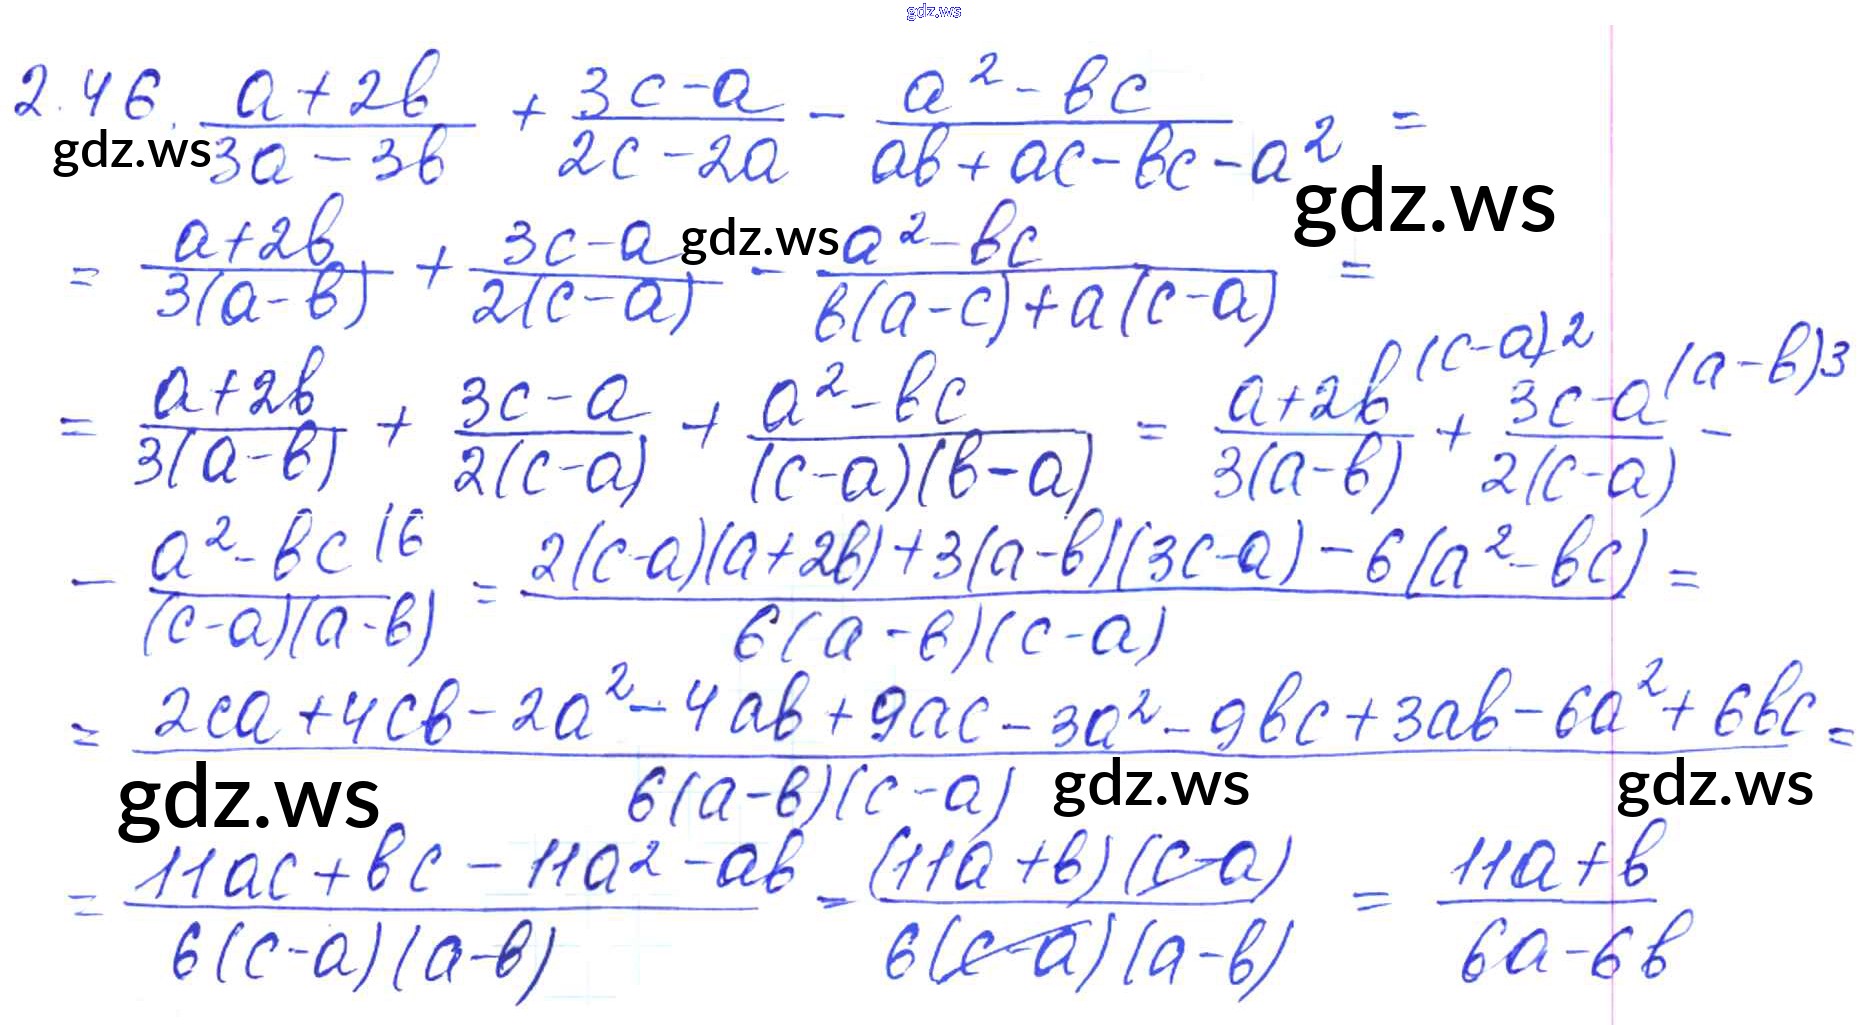 gdz.ws
2.46. \frac{a+2b}{3a-3b} + \frac{3c-a}{2c-2a} - \frac{a^2-bc}{ab+ac-bc-a^2} =
gdz.ws
gdz.ws
= \frac{a+2b}{3(a-b)} + \frac{3c-a}{2(c-a)} - \frac{a^2-bc}{b(a-c)+a(c-a)} =
gdz.ws
= \frac{a+2b}{3(a-b)} + \frac{3c-a}{2(c-a)} + \frac{a^2-bc}{(c-a)(b-a)} = \frac{a+2b^{(c-a)2}}{3(a-b)} + \frac{3c-a^{(a-b)3}}{2(c-a)} -
- \frac{a^2-bc^{(6}}{(c-a)(a-b)} = \frac{2(c-a)(a+2b)+3(a-b)(3c-a)-6(a^2-bc)}{6(a-b)(c-a)} =
= \frac{2ca+4cb-2a^2-4ab+9ac-3a^2-9bc+3ab-6a^2+6bc}{6(a-b)(c-a)} =
gdz.ws gdz.ws gdz.ws
= \frac{11ac+bc-11a^2-ab}{6(c-a)(a-b)} = \frac{(11a+b)(c-a)}{6(c-a)(a-b)} = \frac{11a+b}{6a-6b}